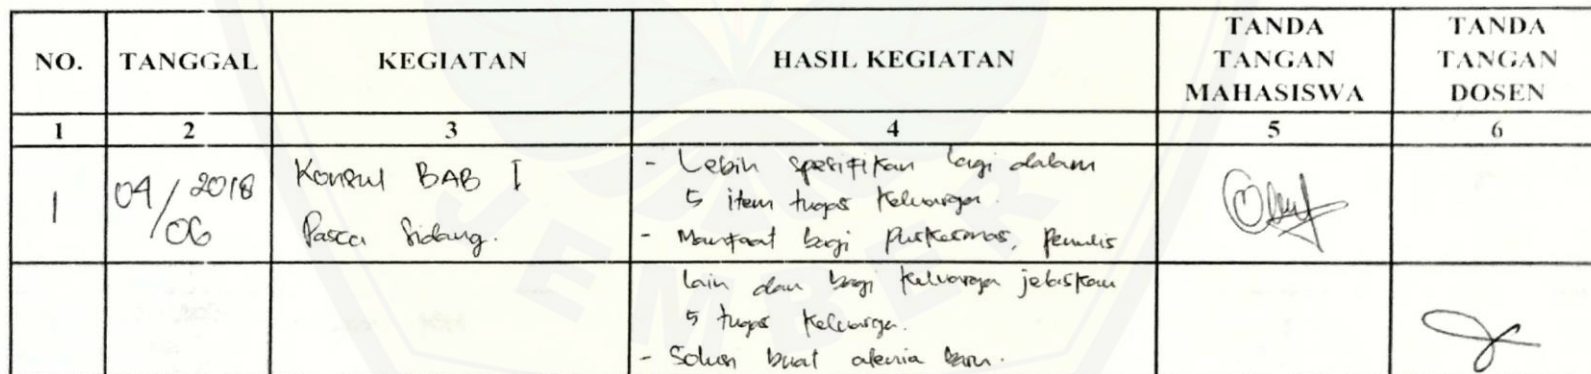 NO. TANGGAL KEGIATAN HASIL KEGIATAN TANDA TANGAN MAHASISWA TANDA TANGAN DOSEN
1 2 3 4 5 6
1 04/06 2018 Konsul BAB I - Lebih spesifikan lagi dalam
5 item tugas keluarga.
Pasca Sidang. - Manfaat bagi Puskesmas, Penulis
lain dan bagi keluarga jelaskan
5 tugas keluarga.
- Solusi buat alenia baru.
JEMBER